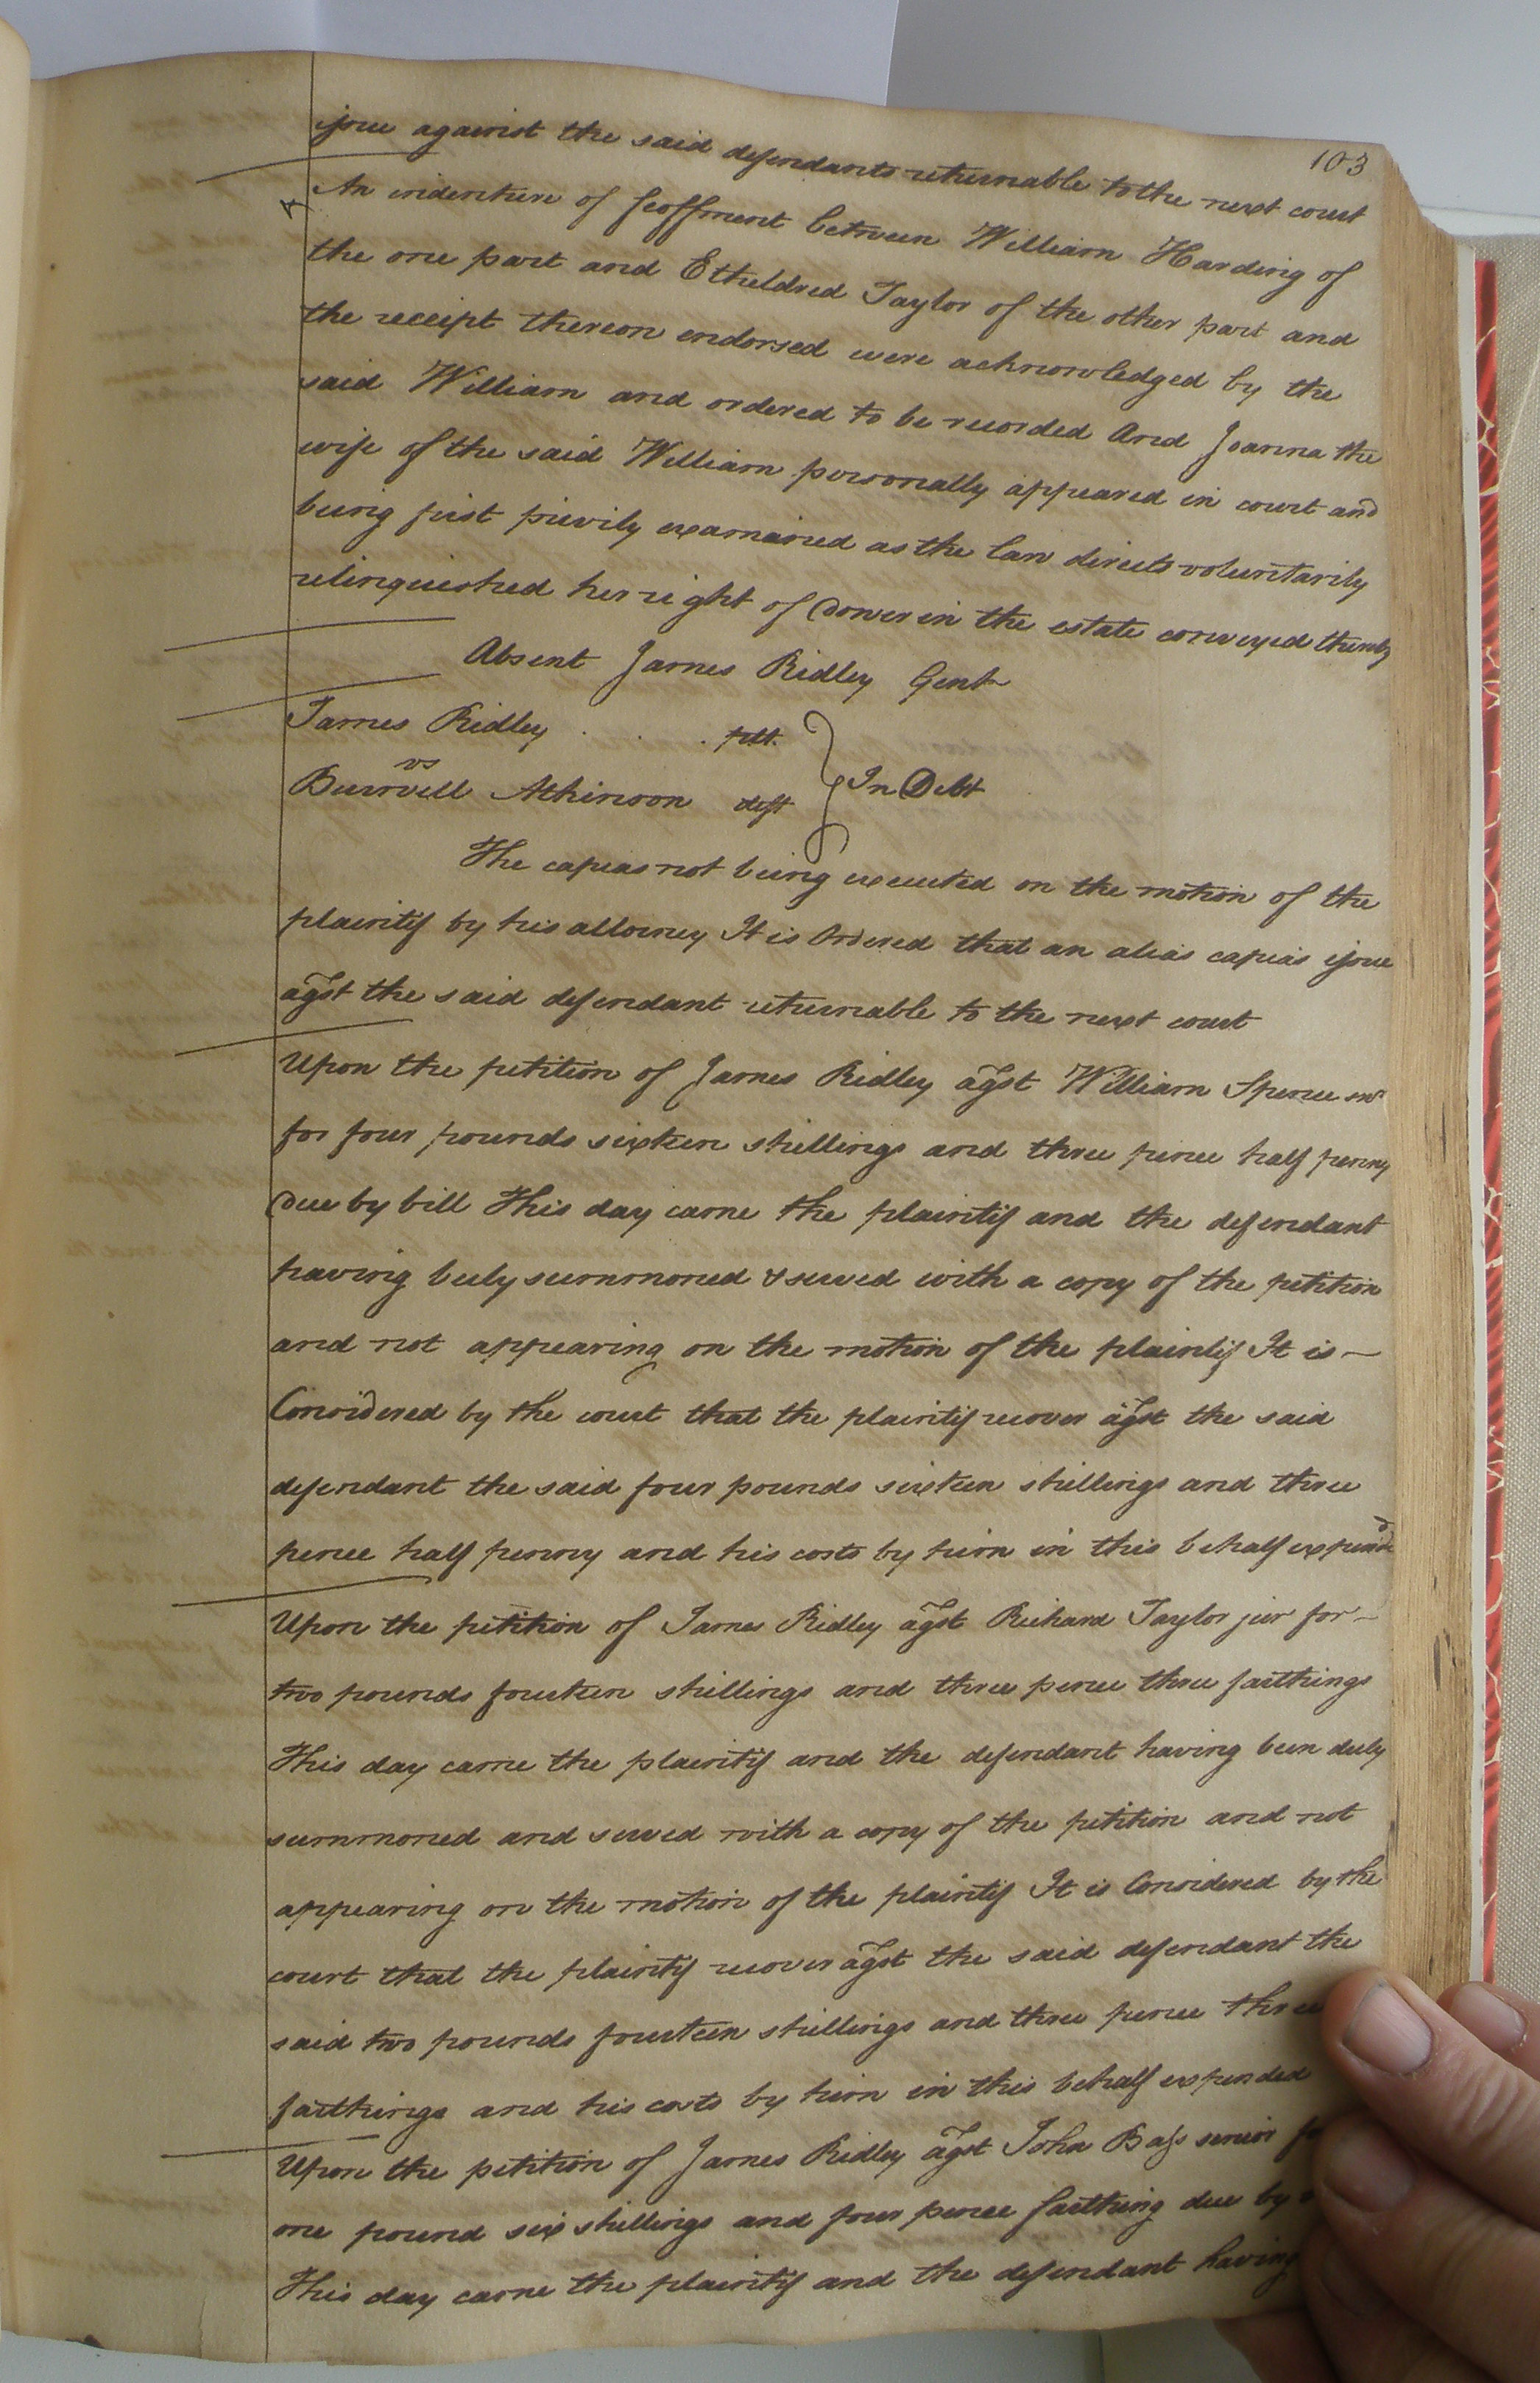 103
issue against the said defendants returnable to the next court
An indenture of feoffment between William Harding of
the one part and Etheldred Taylor of the other part and
the receipt thereon endorsed were acknowledged by the
said William and ordered to be recorded And Joanna the
wife of the said William personally appeared in court and
being first privily examained as the law directs voluntarily
relinquished her right of Dower in the estate conveyed thereby
Absent James Ridley Gent
James Ridley . . . plt.
vs
In Debt
Burrell Atkinson deft
The capias not being executed on the motion of the
plaintif by his attorney It is Ordered that an alias capias issue
agst the said defendant returnable to the next court
Upon the petition of James Ridley agst William Spence
for four pounds sixteen shillings and three pence half penny
due by bill This day came the plaintif and the defendant
having buly summoned & served with a copy of the petition
and not appearing on the motion of the plaintif It is —
Considered by the court that the plaintif recover agst the said
defendant the said four pounds sixteen shillings and three
pence half penny and his costs by him in this behalf expended
Upon the petition of James Ridley agst Richard Taylor jur for —
two pounds fourteen shillings and three pence three farthings
This day came the plaintif and the defendant having been duly
summoned and served with a copy of the petition and not
appearing on the motion of the plaintif It is Considered by the
court that the plaintif recover agst the said defendant the
said two pounds fourteen shillings and three pence three
farthings and his costs by him in this behalf expended
Upon the petition of James Ridley agst John Bass senior
one pound six shillings and four pence farthing due by
This day came the plaintif and the defendant having